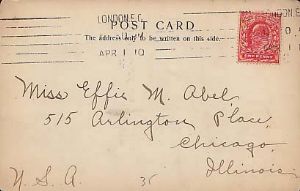 LONDON E.C.
APR 1 10
POST CARD
The address only to be written on this side.
Miss Effie M. Abel,
515 Arlington Place,
Chicago,
Illinois,
U. S. A.
35